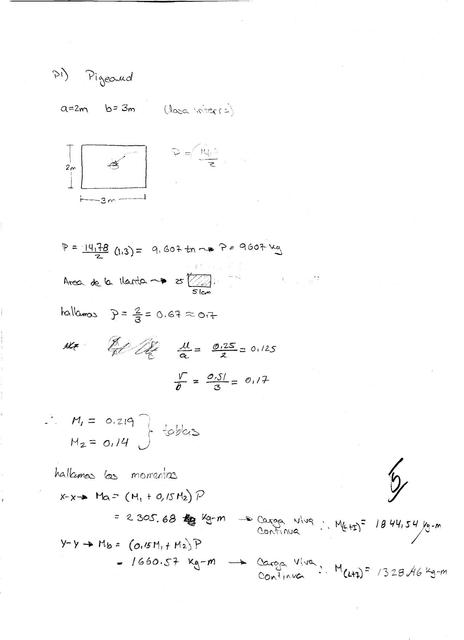 P1) Pigeaud
a=2m b=3m (losa interna)
2m
3m
P = 14.78/2 (1.3) = 9.607 tn → P = 9607 kg
Area de la llanta → 25
51cm
hallamos ρ = 2/3 = 0.67 ≈ 0.7
u/a = 0.25/2 = 0.125
v/b = 0.51/3 = 0.17
∴ M1 = 0.219
M2 = 0.14 } tablas
hallamos los momentos
x-x → Ma = (M1 + 0,15M2) P
= 2305.68 kg-m → Carga viva continua ∴ M(L+I) = 1844,54 kg-m
y-y → Mb = (0,15M1 + M2) P
= 1660.57 kg-m → Carga viva continua ∴ M(L+I) = 1328,46 kg-m
5